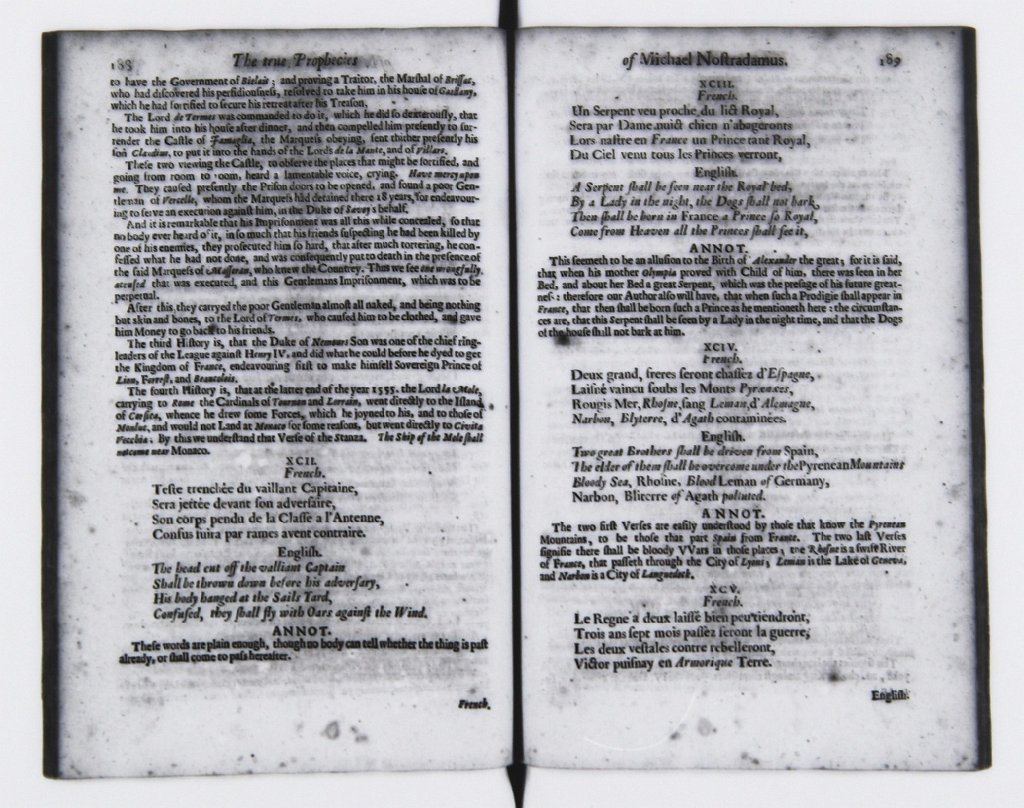 188 The true Prophecies
to have the Government of Bielais; and proving a Traitor, the Marshal of Brissac,
who had discovered his perfidiousness, resolved to take him in his house of Gasdany,
which he had fortified to secure his retreat after his Treason.
The Lord de Termes was commanded to do it, which he did so dexterously, that
he took him into his house after dinner, and then compelled him presently to sur-
render the Castle of the Marquess obeying, sent thither presently his
son Claudius, to put it into the hands of the Lords de la Mante, and of Villars.
These two viewing the Castle, to observe the places that might be fortified, and
going from room to room, heard a lamentable voice, crying, Have mercy upon
me. They caused presently the Prison doors to be opened, and found a poor Gen-
tleman of Vercelle, whom the Marquess had detained there 18 years, for endeavour-
ing to serve an execution against him, in the Duke of Savoy's behalf.
And it is remarkable that his Imprisonment was all this while concealed, so that
no body ever heard o' it, in so much that his friends suspecting he had been killed by
one of his enemies, they prosecuted him so hard, that after much tortering, he con-
fessed what he had not done, and was consequently put to death in the presence of
the said Marquess of Masseran, who knew the Countrey. Thus we see one wrongfully
accused that was executed, and this Gentlemans Imprisonment, which was to be
perpetual.
After this, they carryed the poor Gentleman almost all naked, and being nothing
but skin and bones, to the Lord of Termes, who caused him to be clothed, and gave
him Money to go back to his friends.
The third History is, that the Duke of Nemours Son was one of the chief ring-
leaders of the League against Henry IV. and did what he could before he dyed to get
the Kingdom of France, endeavouring first to make himself Sovereign Prince of
Lion, Forrest, and Beaucolois.
The fourth History is, that at the latter end of the year 1555. the Lord la Mole,
carrying to Rome the Cardinals of Tournon and Lorrain, went directly to the Island
of Corsica, whence he drew some Forces, which he joyned to his, and to those of
Monluc, and would not Land at Monaco for some reasons, but went directly to Civita
Vecchia. By this we understand that Verse of the Stanza. The Ship of the Mole shall
not come near Monaco.
XCII.
French.
Teste trenchée du vaillant Capitaine,
Sera jettée devant son adversaire,
Son corps pendu de la Classe a l'Antenne,
Confus fuira par rames avent contraire.
English.
The head cut off the valliant Captain
Shall be thrown down before his adversary,
His body hanged at the Sails Yard,
Confused, they shall fly with Oars against the Wind.
ANNOT.
These words are plain enough, though no body can tell whether the thing is past
already, or shall come to pass hereafter.
French.
of Michael Nostradamus. 189
XCIII.
French.
Un Serpent veu proche du lict Royal,
Sera par Dame nuict chien n'abageronts
Lors nastre en France un Prince tant Royal,
Du Ciel venu tous les Princes verront,
English.
A Serpent shall be seen near the Royal bed,
By a Lady in the night, the Dogs shall not bark,
Then shall be born in France a Prince so Royal,
Come from Heaven all the Princes shall see it,
ANNOT.
This seemeth to be an allusion to the Birth of Alexander the great; for it is said,
that when his mother Olympia proved with Child of him, there was seen in her
Bed, and about her Bed a great Serpent, which was the presage of his future great-
ness: therefore our Author also will have, that when such a Prodigie shall appear in
France, that then shall be born such a Prince as he mentioneth here: the circumstan-
ces are, that this Serpent shall be seen by a Lady in the night time, and that the Dogs
of the house shall not bark at him.
XCIV.
French.
Deux grand, freres seront chassez d'Espagne,
Laisné vaincu soubs les Monts Pyrenees,
Rougis Mer, Rhosne, sang Leman, d'Alemagne,
Narbon, Blyterre, d'Agath contaminées.
English.
Two great Brothers shall be driven from Spain,
The elder of them shall be overcome under the Pyrenean Mountains
Bloody Sea, Rhosne, Blood Leman of Germany,
Narbon, Bliterre of Agath polluted.
ANNOT.
The two first Verses are easily understood by those that know the Pyrenean
Mountains, to be those that part Spain from France. The two last Verses
signifie there shall be bloody VVars in those places; the Rhosne is a swift River
of France, that passeth through the City of Lyons; Leman is the Lake of Geneva,
and Narbon is a City of Languedock.
XCV.
French.
Le Regne a deux laissé bien peu tiendront,
Trois ans sept mois passez feront la guerre;
Les deux vestales contre rebelleront,
Victor puisnay en Armorique Terre.
English.